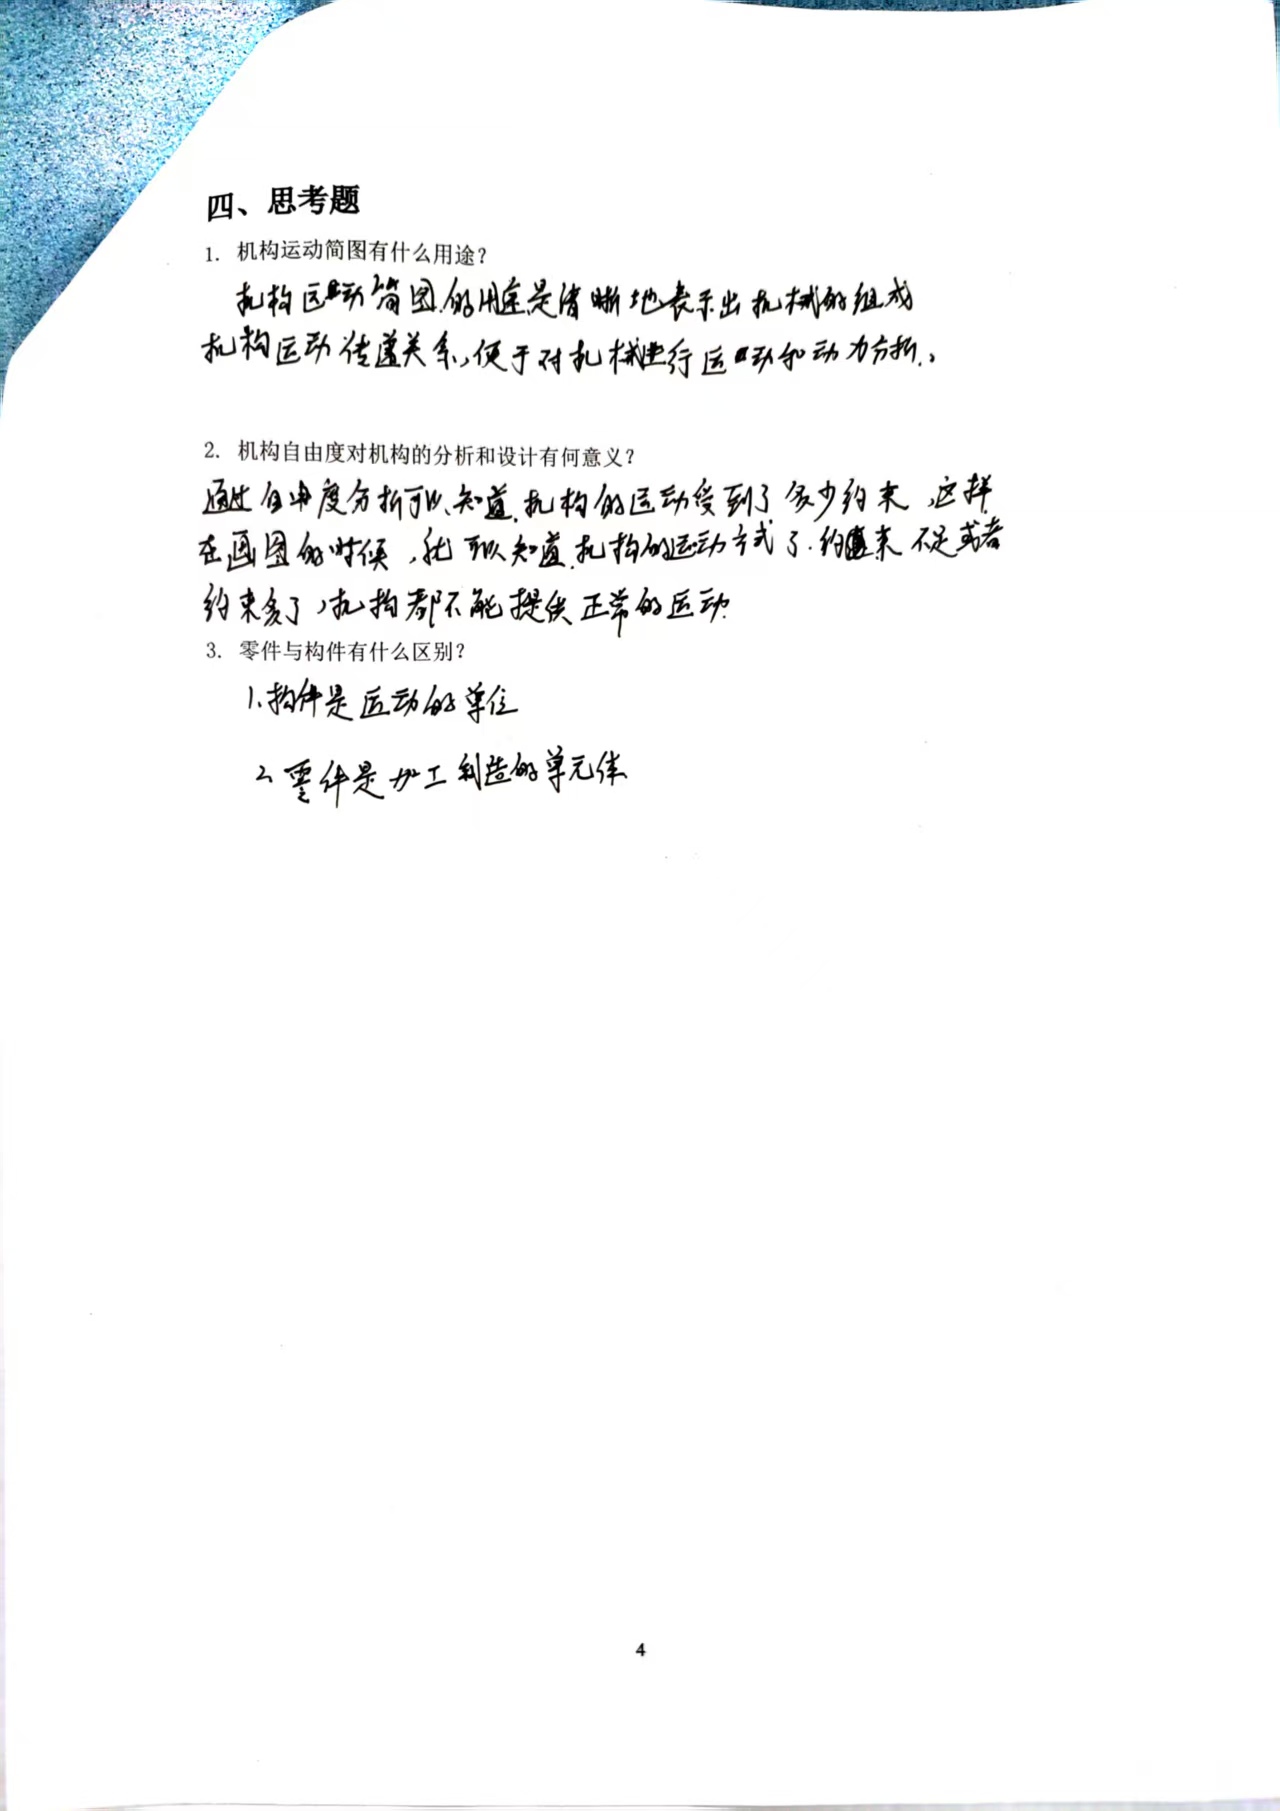 四、思考题
1. 机构运动简图有什么用途？
机构运动简图的用途是清晰地表示出机械的组成
机构运动传递关系，便于对机械进行运动和动力分析。
2. 机构自由度对机构的分析和设计有何意义？
通过自由度分析可以知道机构的运动受到了多少约束，这样
在画图的时候，就可以知道机构的运动方式了．约束不足或者
约束多了，机构都不能提供正常的运动．
3. 零件与构件有什么区别？
1.构件是运动的单位
2.零件是加工制造的单元体
4